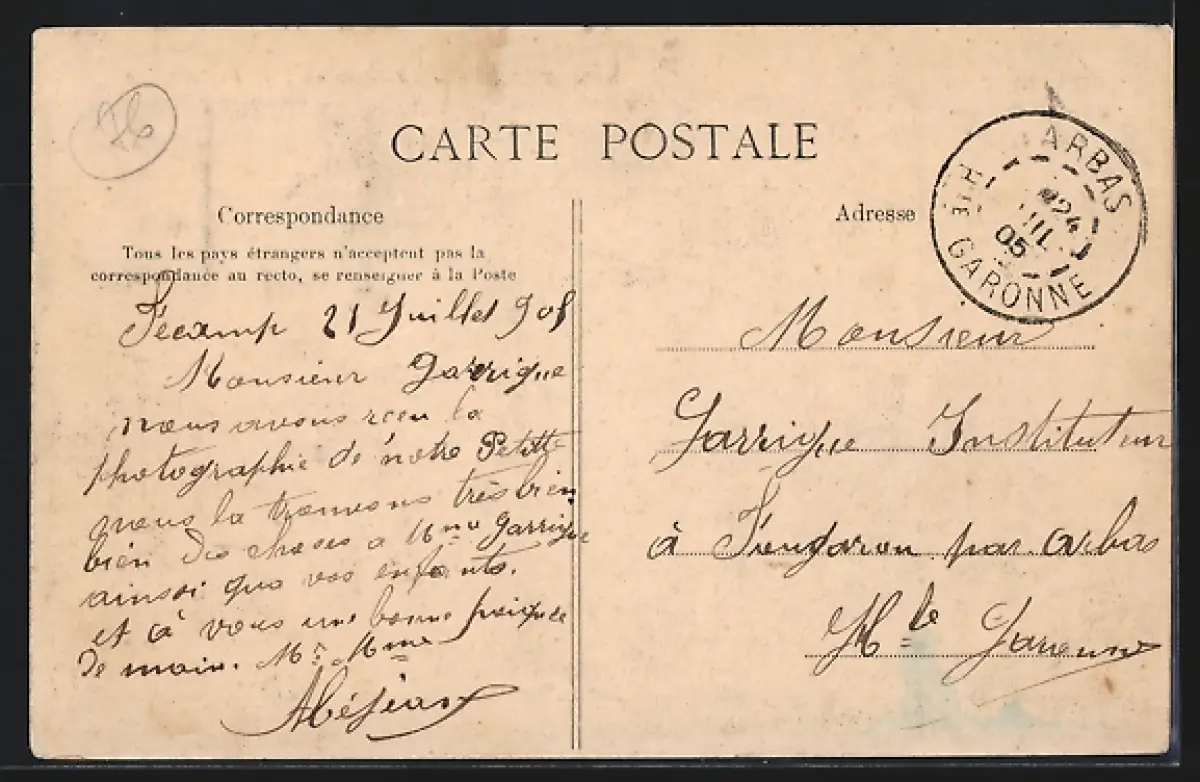 76
CARTE POSTALE
Correspondance
Tous les pays étrangers n'acceptent pas la
correspondance au recto, se renseigner à la Poste
Fécamp 21 Juillet 905
Monsieur Garrigue
nous avons recu la
photographie de notre Petite
nous la trouvons très bien
bien des choses a Mme Garrigue
ainsi que vos enfants.
et à vous une bonne poignée
de main. Mr Mme
Adresse
ARBAS
24
05
HTE GARONNE
Monsieur
Garrigue Instituteur
à Fougaron par Arbas
Hte Garonne